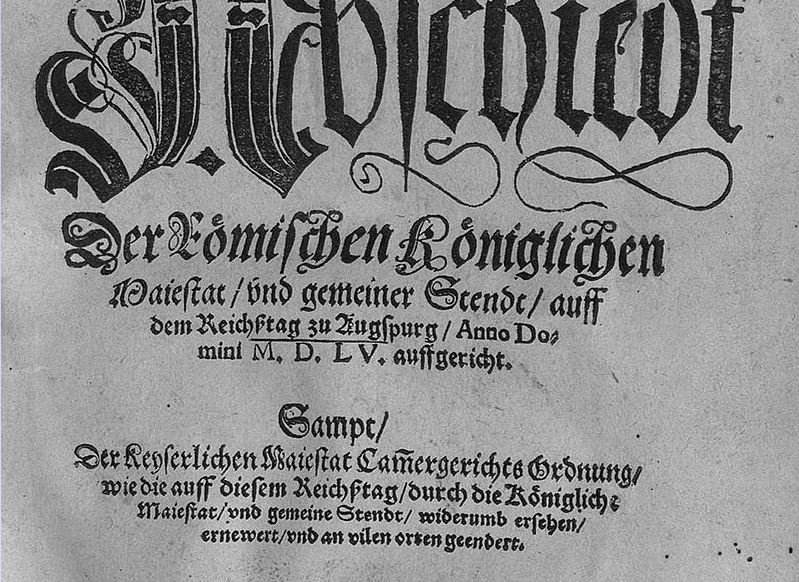 Abschiedt
Der Römischen Königlichen
Maiestat/ vnd gemeiner Stendt/ auff
dem Reichßtag zu Augspurg/ Anno Do⸗
mini M. D. LV. auffgericht.
Sampt/
Der Keyserlichen Maiestat Cam̃ergerichts Ordnung/
wie die auff diesem Reichßtag/ durch die Königliche
Maiestat/ vnd gemeine Stendt/ widerumb ersehen/
ernewert/ vnd an vilen orten geendert.